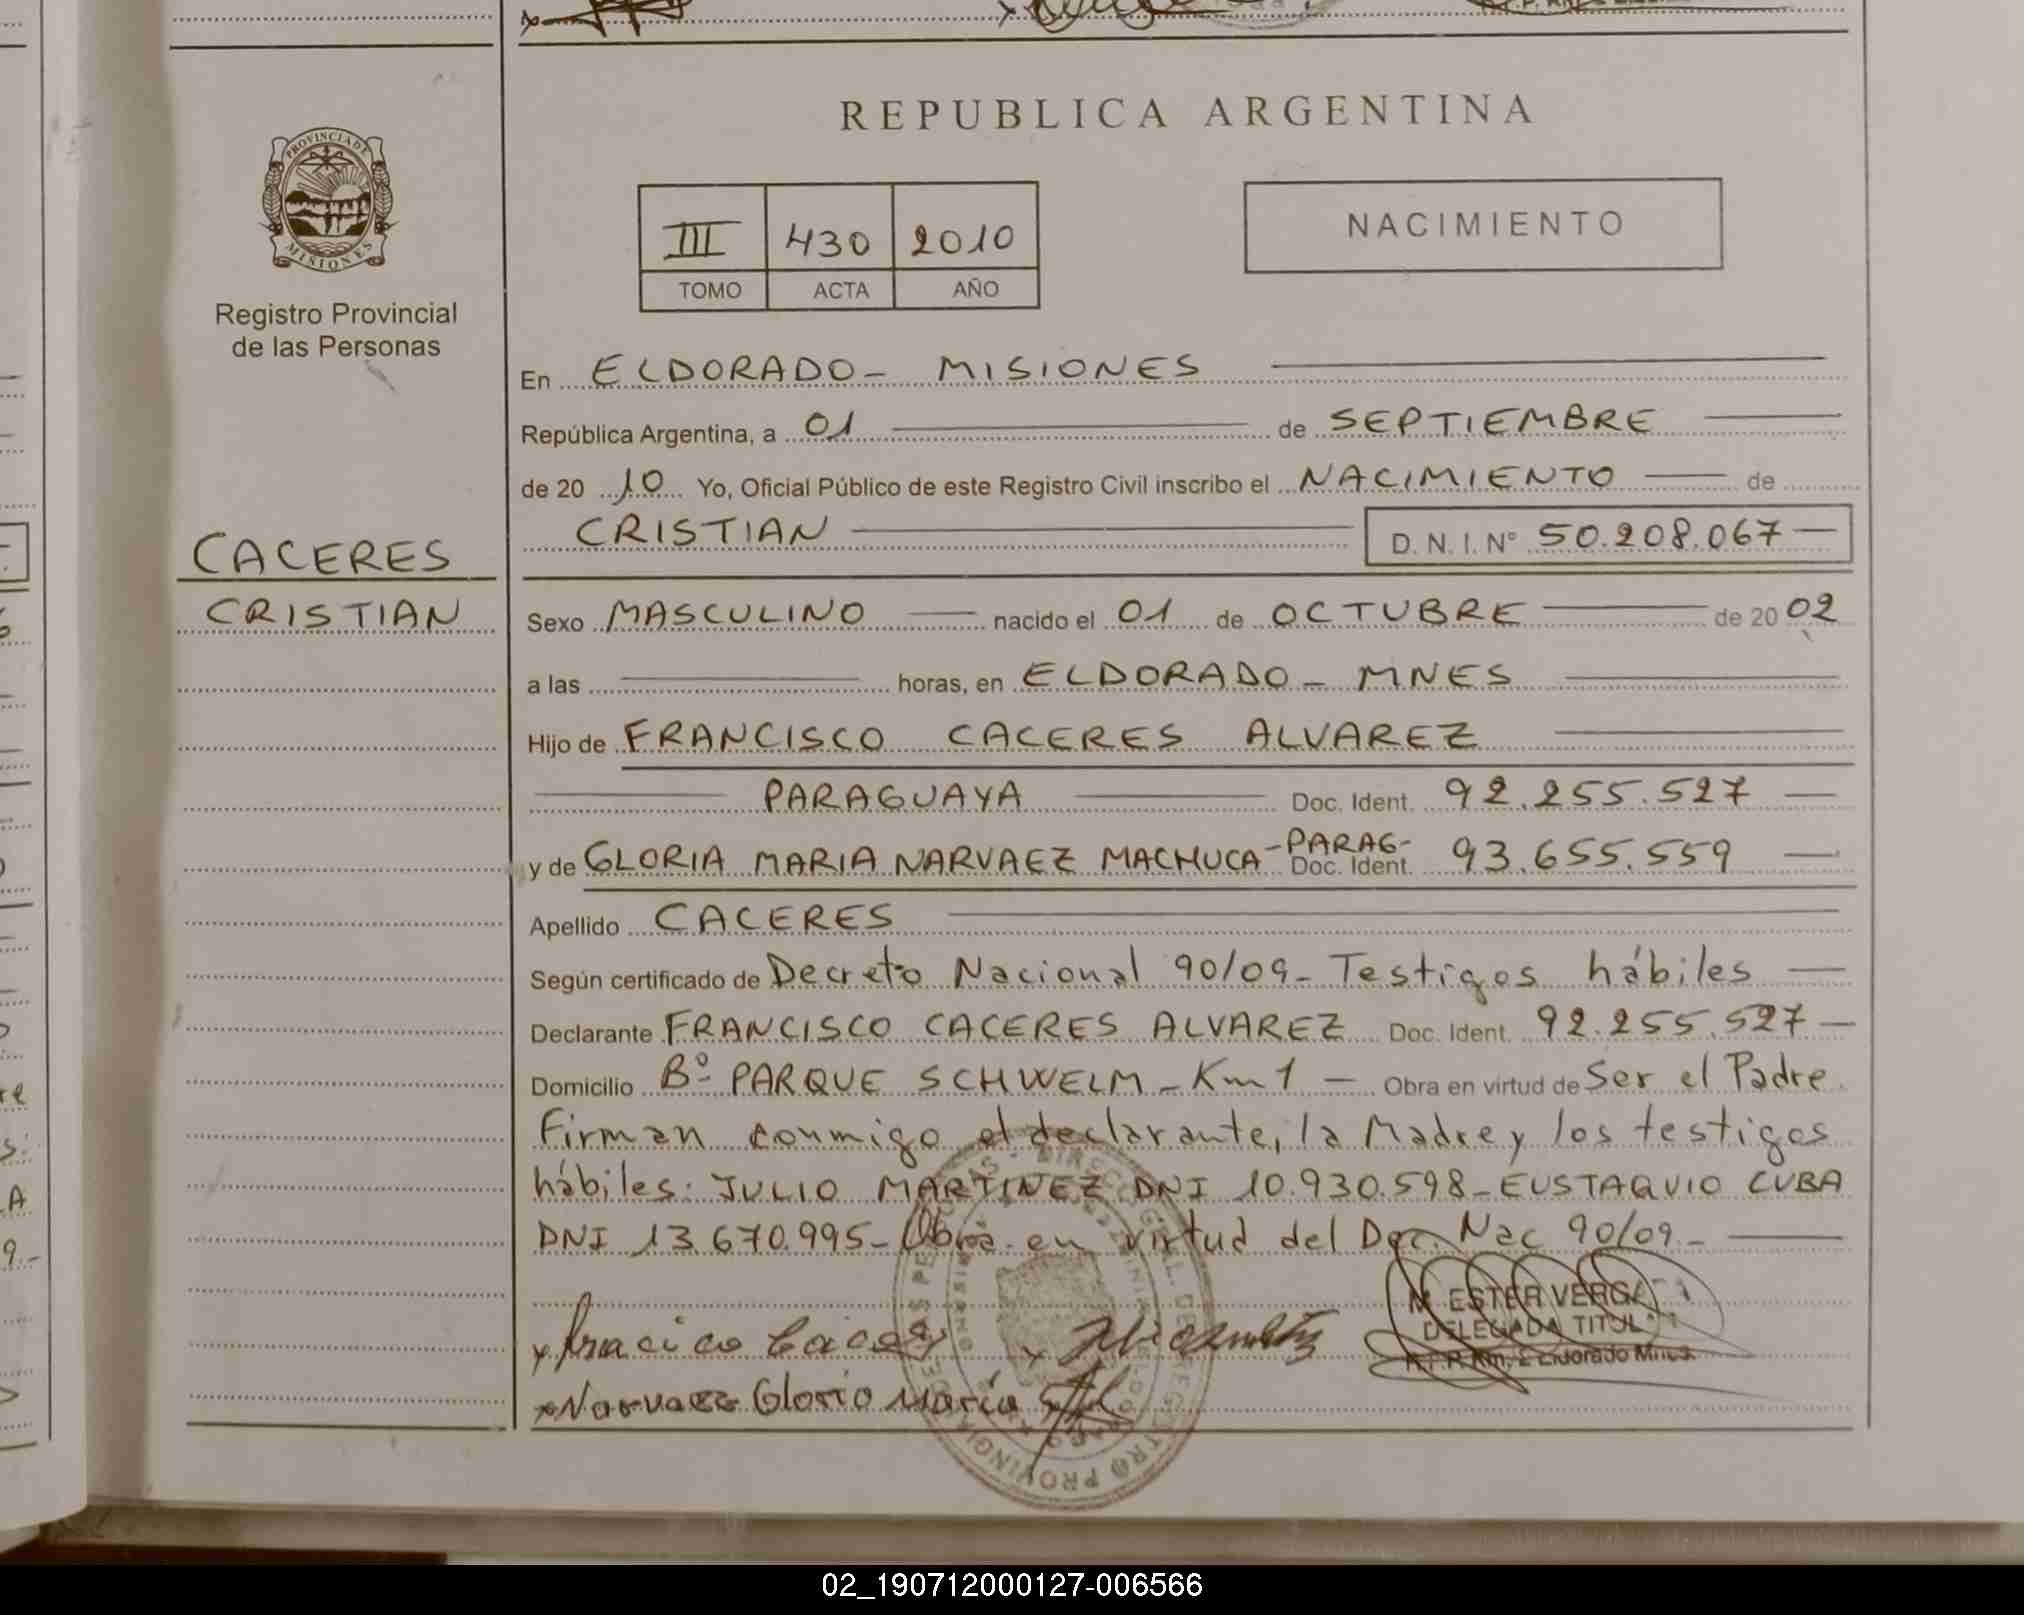 REPUBLICA ARGENTINA
PROVINCIA DE MISIONES
Registro Provincial
de las Personas
III 430 2010
TOMO ACTA AÑO
NACIMIENTO
CACERES
CRISTIAN
En ELDORADO - MISIONES
República Argentina, a 01 de SEPTIEMBRE
de 20 10 Yo, Oficial Público de este Registro Civil inscribo el NACIMIENTO de
CRISTIAN D. N. I. N° 50.208.067
Sexo MASCULINO nacido el 01 de OCTUBRE de 20 02
a las horas, en ELDORADO - MNES
Hijo de FRANCISCO CACERES ALVAREZ
PARAGUAYA Doc. Ident. 92.255.527
y de GLORIA MARIA NARVAEZ MACHUCA - PARAG- Doc. Ident. 93.655.559
Apellido CACERES
Según certificado de Decreto Nacional 90/09 - Testigos hábiles
Declarante FRANCISCO CACERES ALVAREZ Doc. Ident. 92.255.527
Domicilio Bº PARQUE SCHWELM - Km 1 - Obra en virtud de Ser el Padre
Firman conmigo el declarante, la Madre y los testigos
hábiles: JULIO MARTINEZ DNI 10.930.598 - EUSTAQUIO CUBA
DNI 13.670.995 - Obra en virtud del Dec. Nac 90/09 -
M. ESTER VERGARA
DELEGADA TITULAR
Eldorado Mnes.
x Fracico Caceres
x Narvaez Gloria María
02_190712000127-006566